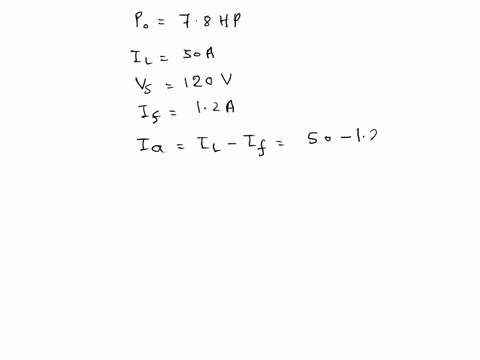 P₀ = 7.8 HP
I_L = 50A
V_S = 120 V
I_f = 1.2A
I_a = I_L - I_f = 50 - 1.2